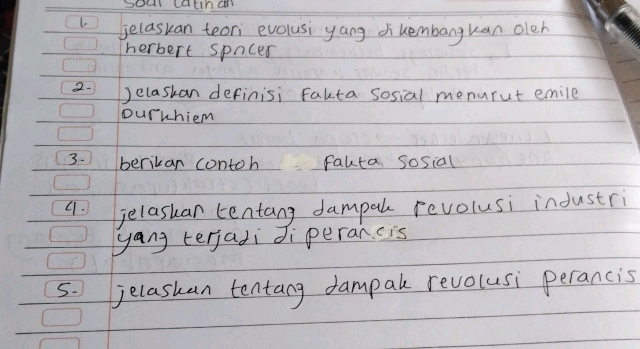 Soal Latihan
1. jelaskan teori evolusi yang di kembangkan oleh
herbert spncer
2. jelaskan definisi fakta sosial menurut emile
Durkhiem
3. berikan contoh fakta sosial
4. jelaskan tentang dampak revolusi industri
yang terjadi di perancis
5. jelaskan tentang dampak revolusi perancis